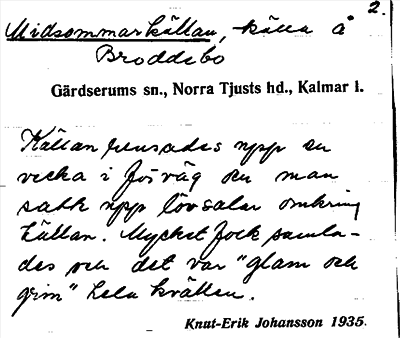 2.
Midsommarkällan, källa å
Broddebo
Gärdserums sn., Norra Tjusts hd., Kalmar l.
Källan rensades upp en
vecka i förväg och man
satte upp lövsalar omkring
källan. Mycket folk samla-
des och det var "glam och
grin" hela kvällen.
Knut-Erik Johansson 1935.